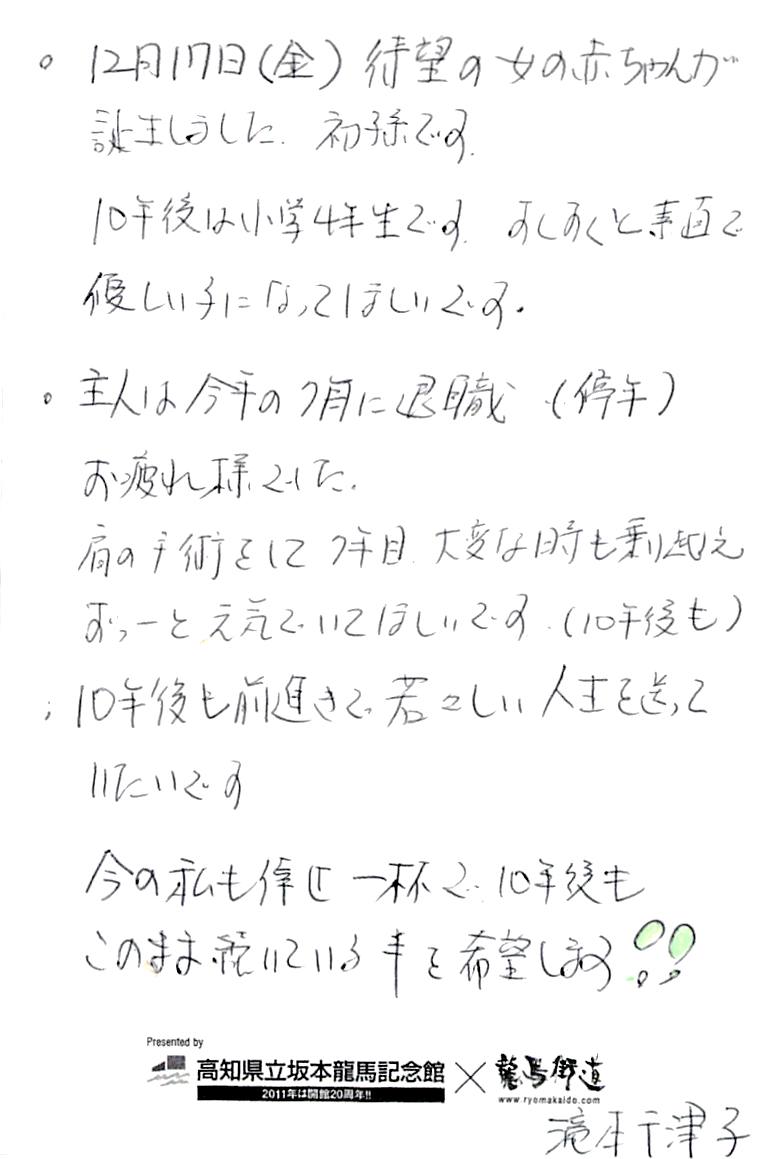 。12月17日(金) 待望の女の赤ちゃんが
誕生しました. 初孫です.
10年後は小学4年生です. すくすくと素直で
優しい子になってほしいです.
。主人は今年の7月に退職 (停年)
お疲れ様でした.
肩の手術をして 7年目. 大変な時も乗り越え
ずっーと元気でいてほしいです. (10年後も)
; 10年後も前進きで 若々しい人生を送って
いたいです
今の私も倖せ一杯で. 10年後も
このまま続いている事を希望します!!
Presented by
高知県立坂本龍馬記念館 × 龍馬街道
2011年は開館20周年!!
www.ryomakaido.com
滝本千津子